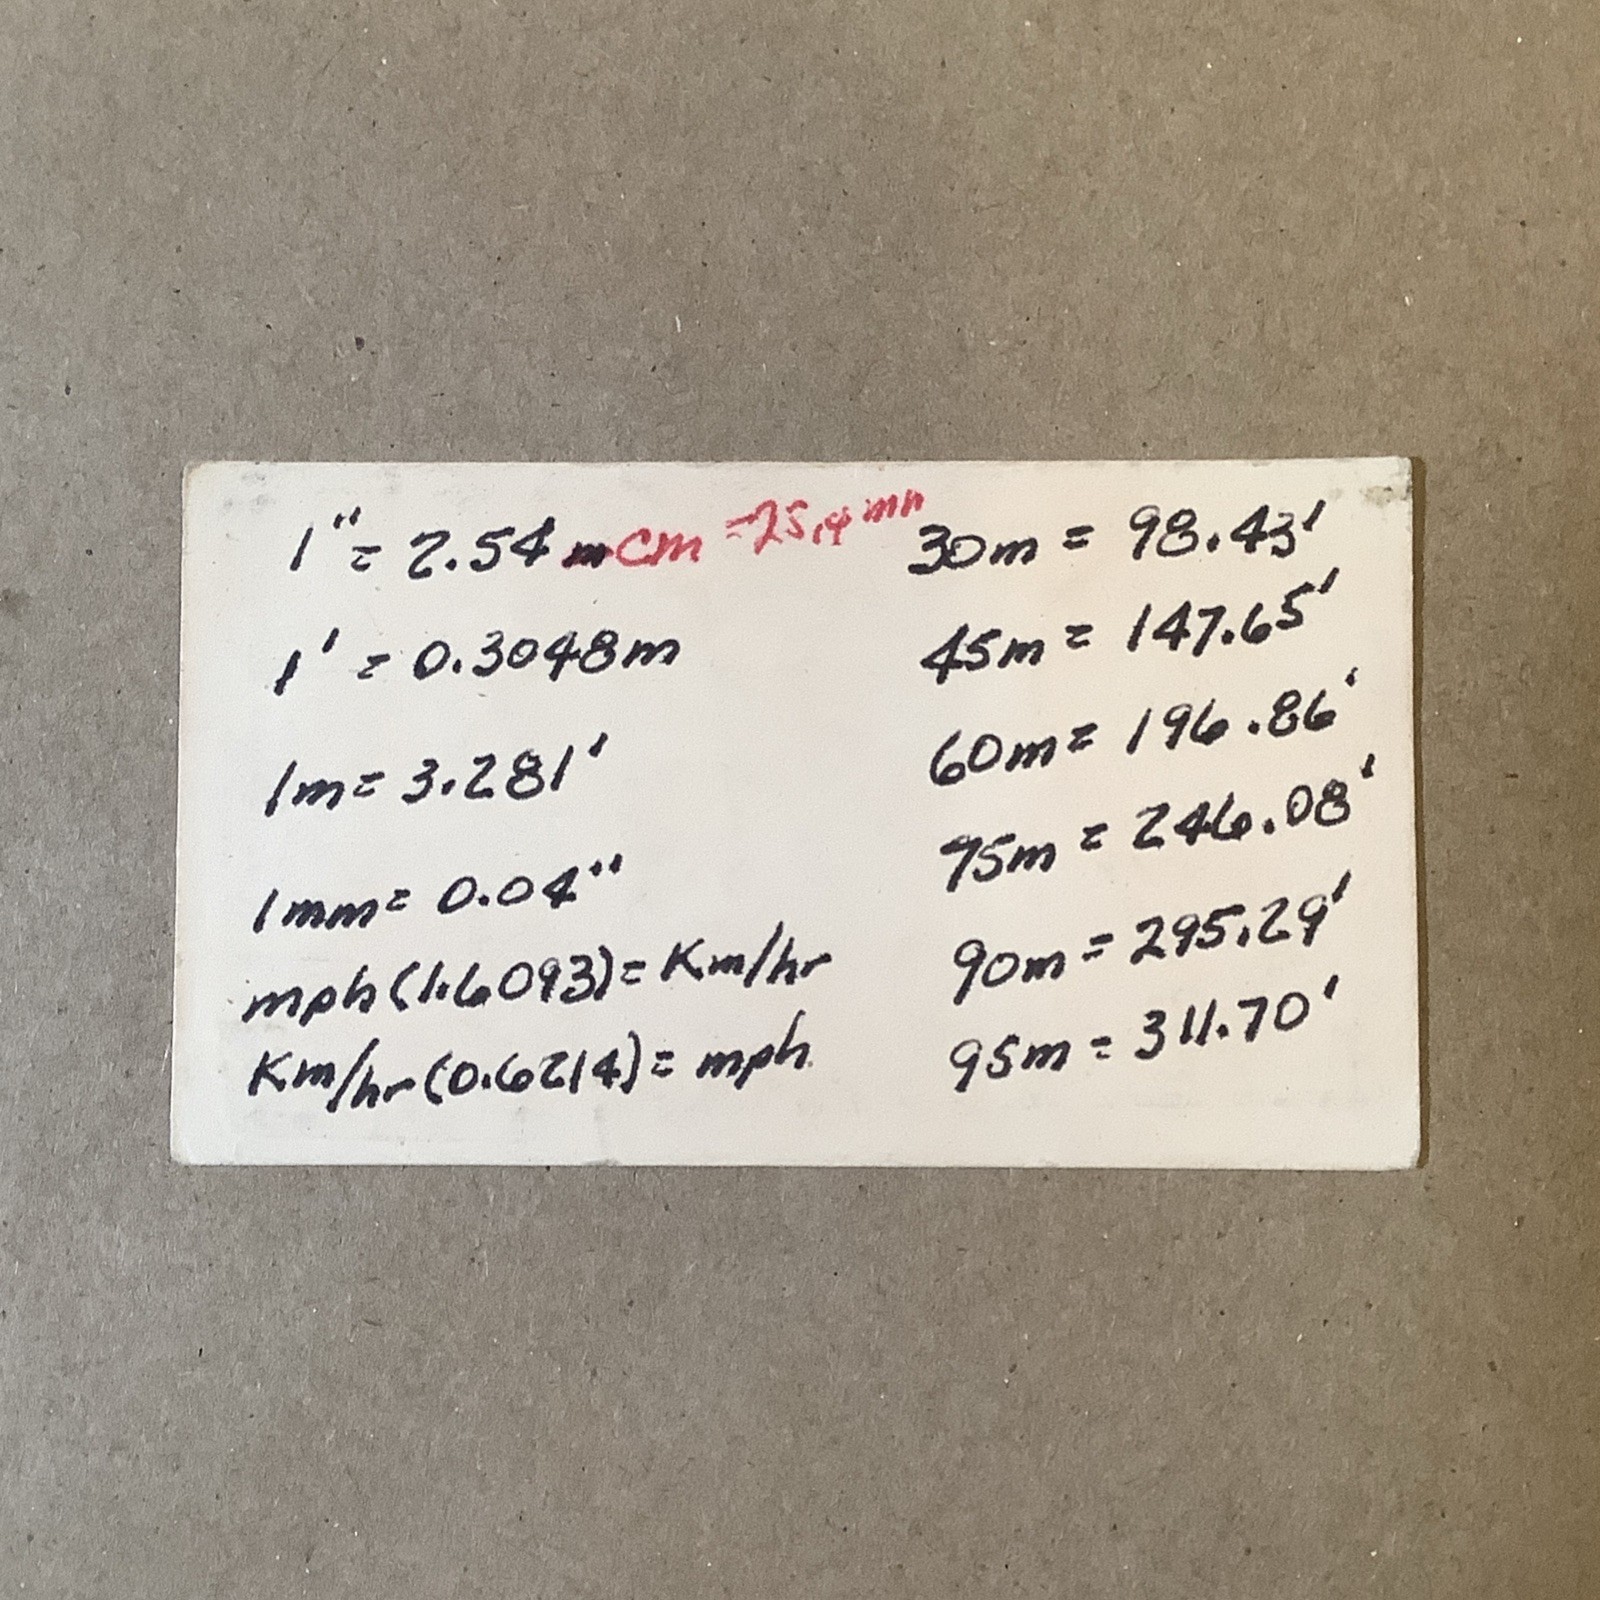 1" = 2.54 cm = 25.4 mm
1' = 0.3048m
1m = 3.281'
1mm = 0.04"
mph(1.6093) = Km/hr
Km/hr(0.6214) = mph
30m = 98.43'
45m = 147.65'
60m = 196.86'
75m = 246.08'
90m = 295.29'
95m = 311.70'